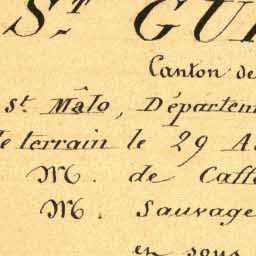 ST GUI
Canton de
St. Mâlo, Départem
le terrain le 29 A
M. de Caff
M. Sauvage
et sous